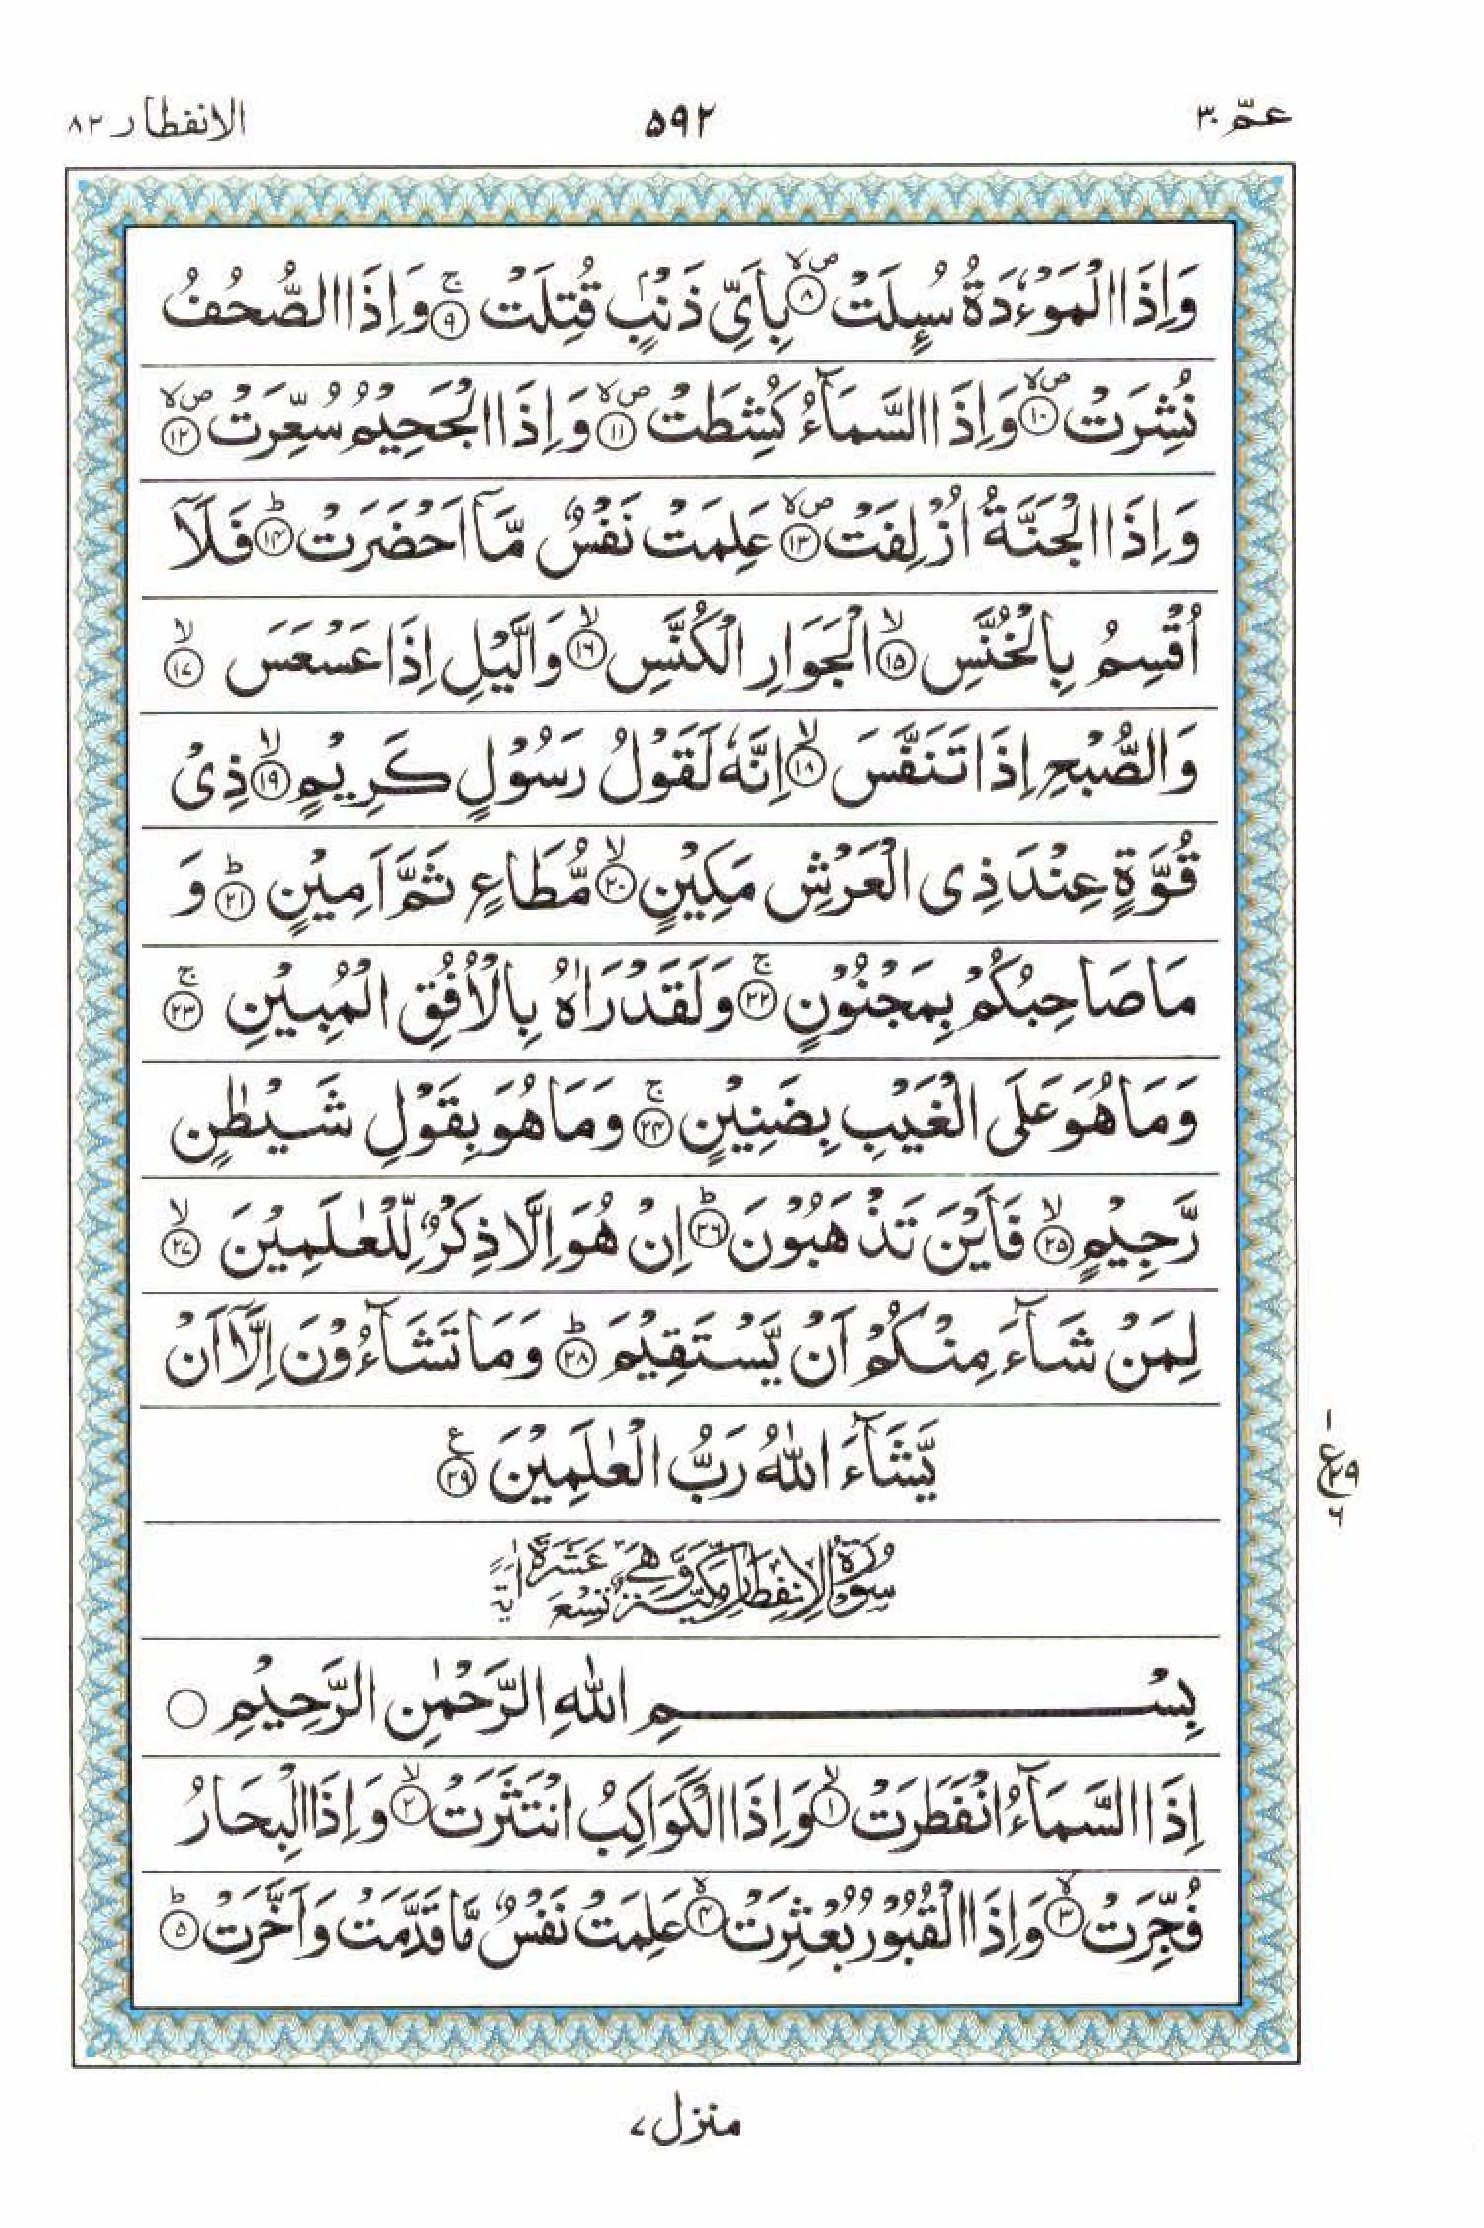 عمّ ٣٠ ٥٩٢ الانفطار ٨٢
وَاِذَا الْمَوْءٗدَةُ سُىِٕلَتْ ۪ۙ‏ ﴿۸﴾ بِاَىِّ ذَنْۢبٍ قُتِلَتْ‌ۚ‏ ﴿۹﴾ وَاِذَا الصُّحُفُ
نُشِرَتْ ۪ۙ‏ ﴿۱۰﴾ وَاِذَا السَّمَآءُ كُشِطَتْ ۪ۙ‏ ﴿۱۱﴾ وَاِذَا الْجَحِيْمُ سُعِّرَتْ ۪ۙ‏ ﴿۱۲﴾
وَاِذَا الْجَنَّةُ اُزْلِفَتْ ۪ۙ‏ ﴿۱۳﴾ عَلِمَتْ نَفْسٌ مَّاۤ اَحْضَرَتْؕ‏ ﴿۱۴﴾ فَلَاۤ
اُقْسِمُ بِالْخُنَّسِۙ‏ ﴿۱۵﴾ الْجَوَارِ الْكُنَّسِۙ‏ ﴿۱۶﴾ وَالَّيْلِ اِذَا عَسْعَسَۙ‏ ﴿۱۷﴾
وَالصُّبْحِ اِذَا تَنَفَّسَۙ‏ ﴿۱۸﴾ اِنَّهٗ لَقَوْلُ رَسُوْلٍ كَرِيْمٍۙ‏ ﴿۱۹﴾ ذِىْ
قُوَّةٍ عِنْدَ ذِى الْعَرْشِ مَكِيْنٍۙ‏ ﴿۲۰﴾ مُّطَاعٍ ثَمَّ اَمِيْنٍؕ‏ ﴿۲۱﴾ وَ
مَا صَاحِبُكُمْ بِمَجْنُوْنٍ‌ۚ‏ ﴿۲۲﴾ وَلَقَدْ رَاٰهُ بِالْاُفُقِ الْمُبِيْنِ‌ۚ‏ ﴿۲۳﴾
وَمَا هُوَ عَلَى الْغَيْبِ بِضَنِيْنٍ‌ۚ‏ ﴿۲۴﴾ وَمَا هُوَ بِقَوْلِ شَيْطٰنٍ
رَّجِيْمٍۙ‏ ﴿۲۵﴾ فَاَيْنَ تَذْهَبُوْنَؕ‏ ﴿۲۶﴾ اِنْ هُوَ اِلَّا ذِكْرٌ لِّلْعٰلَمِيْنَۙ‏ ﴿۲۷﴾
لِمَنْ شَآءَ مِنْكُمْ اَنْ يَّسْتَقِيْمَؕ‏ ﴿۲۸﴾ وَمَا تَشَآءُوْنَ اِلَّاۤ اَنْ
يَّشَآءَ اللّٰهُ رَبُّ الْعٰلَمِيْنَ ﴿۲۹﴾ ع
١ ع ٢٩ ٦
سُوْرَةُ الْاِنْفِطَارِ مَكِّيَّةٌ وَّهِيَ تِسْعَ عَشَرَةَ اٰيَةً
بِسْمِ اللّٰهِ الرَّحْمٰنِ الرَّحِيْمِ ○
اِذَا السَّمَآءُ انْفَطَرَتْۙ‏ ﴿۱﴾ وَاِذَا الْكَوَاكِبُ انْتَثَرَتْۙ‏ ﴿۲﴾ وَاِذَا الْبِحَارُ
فُجِّرَتْۙ‏ ﴿۳﴾ وَاِذَا الْقُبُوْرُ بُعْثِرَتْۙ‏ ﴿۴﴾ عَلِمَتْ نَفْسٌ مَّا قَدَّمَتْ وَاَخَّرَتْؕ‏ ﴿۵﴾
منزل ٧